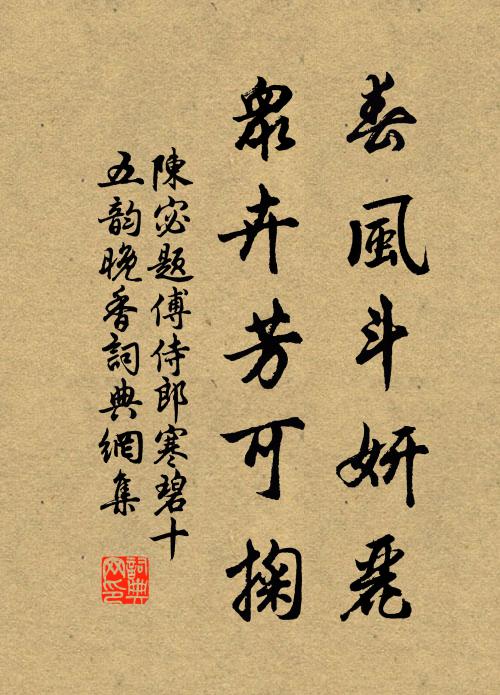 春風斗妍麗
眾卉芳可掬
陳宓題傅侍郎寒碧十
五韵晚香詞典網集
詞典
网印